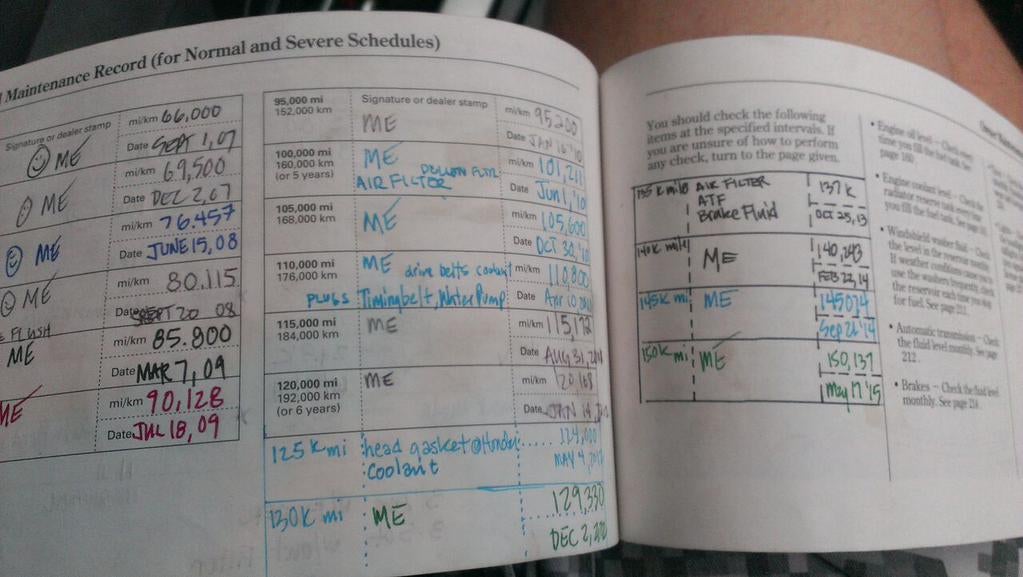 Maintenance Record (for Normal and Severe Schedules)
Signature or dealer stamp
ME
mi/km 66,000
Date SEPT 1, 07
ME
mi/km 69,500
Date DEC 2, 07
ME
mi/km 76.457
Date JUNE 15, 08
ME
mi/km 80.115
Date SEPT 20 08
FLUSH
ME
mi/km 85.800
Date MAR 7, 09
ME
mi/km 90,128
Date JUL 18, 09
95,000 mi
152,000 km
Signature or dealer stamp
ME
mi/km 95200
Date JAN
100,000 mi
160,000 km
(or 5 years)
ME
AIR FILTER
mi/km 101,211
Date Jun 1, '10
105,000 mi
168,000 km
ME
mi/km 105,600
Date OCT 30, '10
110,000 mi
176,000 km
PLUGS
ME drive belts coolant
Timing belt, Water Pump
mi/km 110,800
Date Apr 10
115,000 mi
184,000 km
ME
mi/km 115,172
Date AUG 31,
120,000 mi
192,000 km
(or 6 years)
ME
mi/km 120,168
Date JAN 14,
125K mi
head gasket @Honda
coolant
124,000
MAY 4,
130K mi
ME
129,330
DEC 2,
You should check the following
items at the specified intervals. If
you are unsure of how to perform
any check, turn to the page given.
135 K mile
AIR FILTER
ATF
Brake Fluid
137K
OCT 25, 13
140K mile
ME
140,243
FEB 22, 14
145K mi
ME
145074
Sep 26 '14
150K mi
ME
150,137
May 17 '15
• Engine oil level — Check every
time you fill the fuel tank. See
page
• Engine coolant level — Check the
radiator reserve tank every time
you fill the fuel tank. See page
• Windshield washer fluid — Check
the level in the reservoir monthly.
If weather conditions cause you to
use the washers frequently, check
the reservoir each time you stop
for fuel. See page
• Automatic transmission — Check
the fluid level monthly. See page
212 .
• Brakes — Check the fluid level
monthly. See page